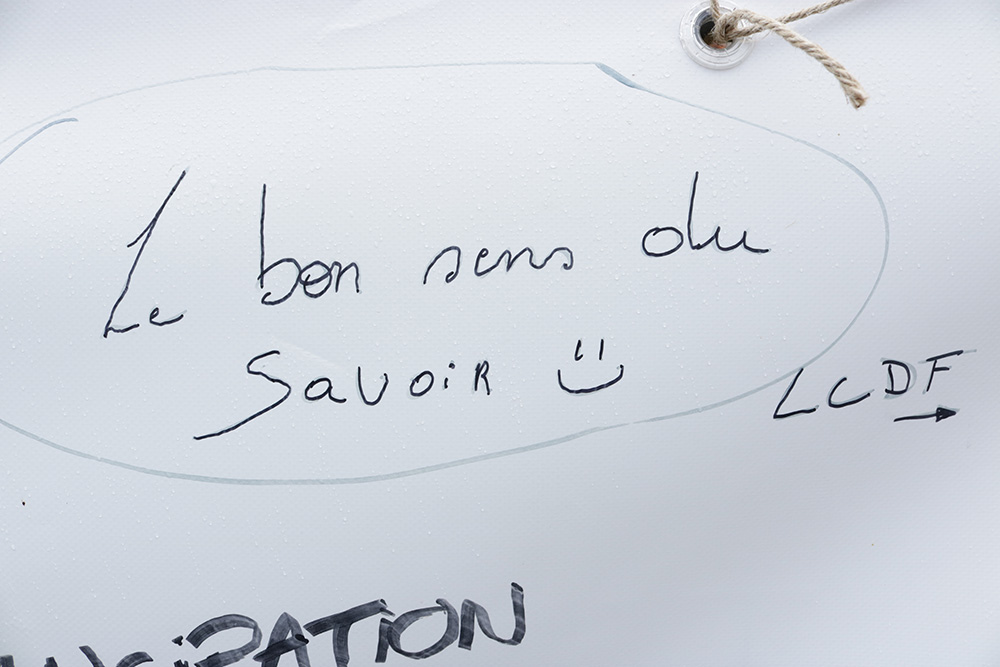 Le bon sens du
Savoir
LCDF
NCiPATION